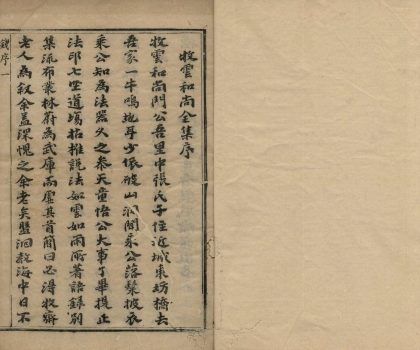 牧雲和尚全集序
牧雲和尚門公吾里中張氏子徑近城東坊橋去
吾家一牛鳴地耳少依破山洞聞乘公落髮披衣
乘公知為法器久之參天童悟公大事了畢提正
法印七坐道場拈椎說法如雲如雨所著語錄別
集流布叢林府為武庫而虛其首簡曰必得牧齋
老人為敘余蓋深愧之余老矣盤洄教海中日不
錢序 一